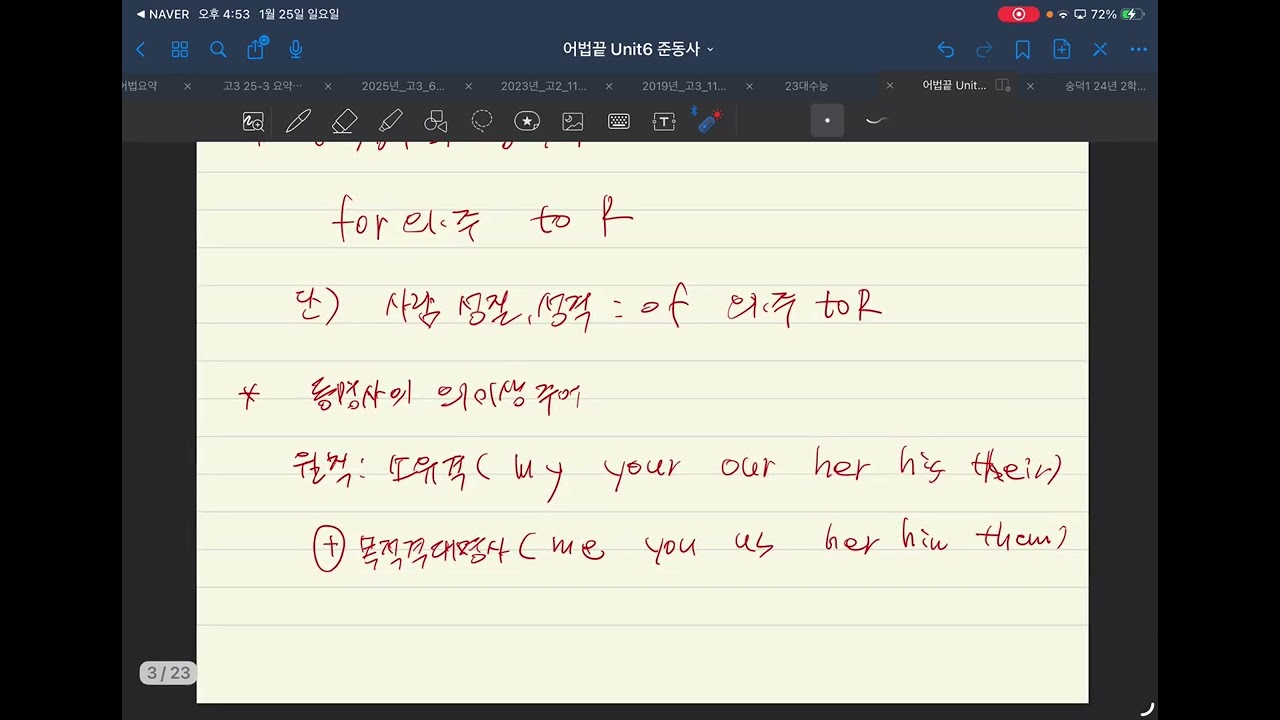 NAVER 오후 4:53 1월 25일 일요일 72%
어법끝 Unit6 준동사
어법요약 고3 25-3 요약… 2025년_고3_6… 2023년_고2_11… 2019년_고3_11… 23대수능 어법끝 Unit… 숭덕1 24년 2학…
for 의.주 to R
단) 사람 성질, 성격 : of 의.주 to R
* 동명사의 의미상 주어
원칙 : 소유격 ( my your our her his their)
+ 목적격대명사 ( me you us her him them)
3 / 23